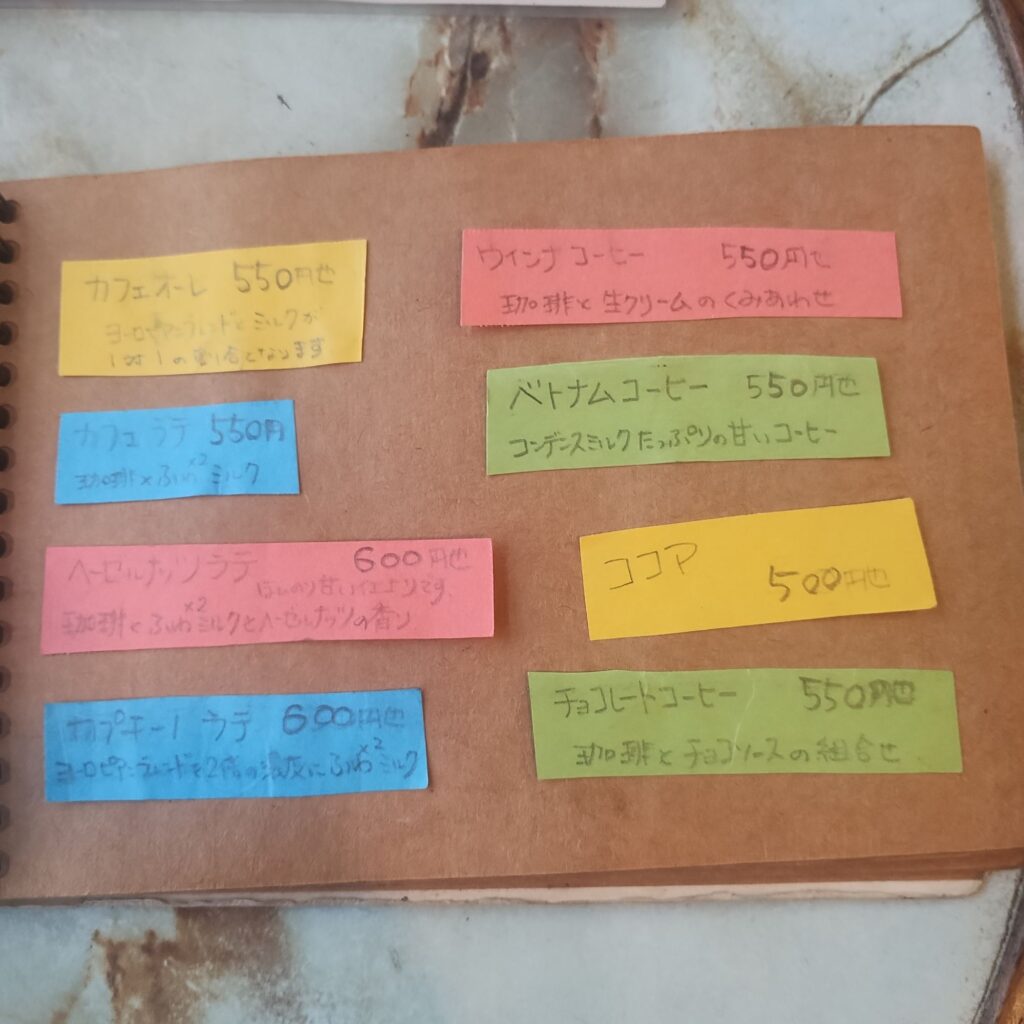 カフェオーレ 550円也
ヨーロピアンブレンドとミルクが
1対1の割合となります
カフェラテ 550円
珈琲×ふわ×2ミルク
ヘーゼルナッツラテ 600円也
ほんのり甘い仕上りです。
珈琲とふわ×2ミルクとヘーゼルナッツの香り
カプチーノラテ 600円也
ヨーロピアンブレンドを2倍の濃度にふわ×2ミルク
ウインナコーヒー 550円也
珈琲と生クリームのくみあわせ
ベトナムコーヒー 550円也
コンデンスミルクたっぷりの甘いコーヒー
ココア 500円也
チョコレートコーヒー 550円也
珈琲とチョコソースの組合せ